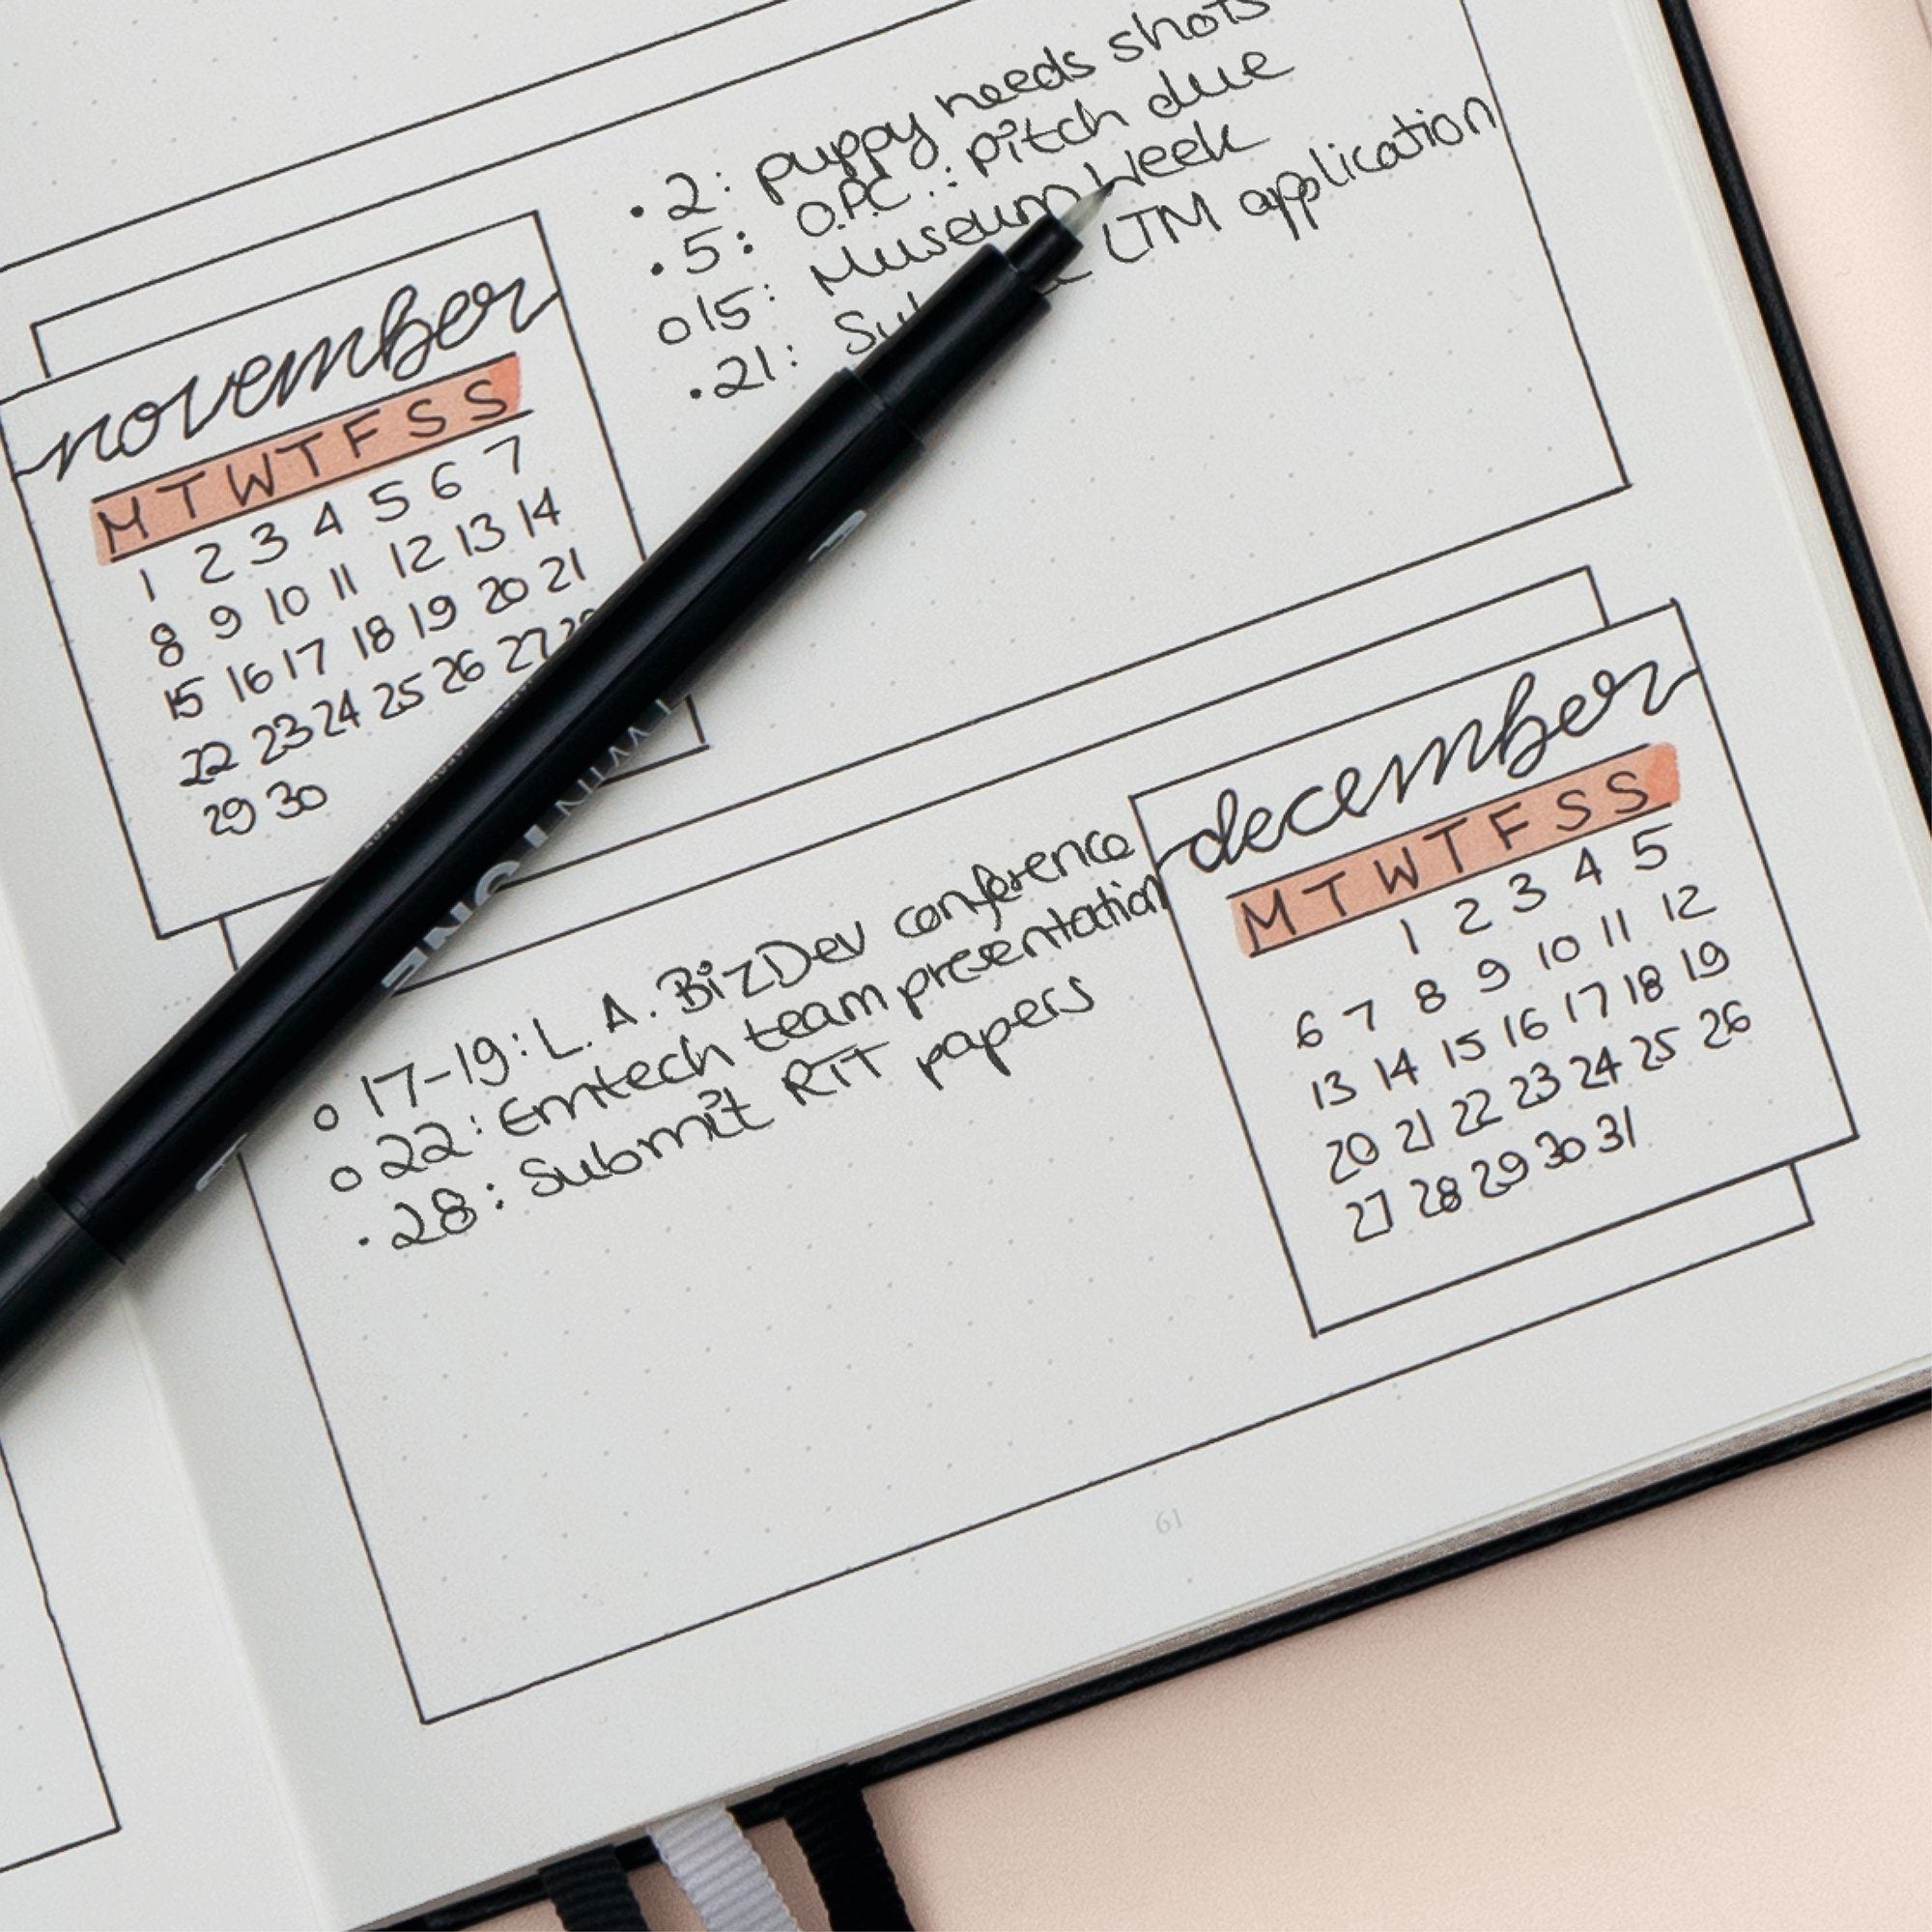 • 2: puppy needs shots
• 5: O.P.C.: pitch due
o 15: Museum Week
• 21: LTM application
november
M T W T F S S
1 2 3 4 5 6 7
8 9 10 11 12 13 14
15 16 17 18 19 20 21
22 23 24 25 26 27
29 30
TWIN TONE
o 17-19: L.A. BizDev conference
o 22: Emtech team presentation
• 28: Submit RTT papers
december
M T W T F S S
1 2 3 4 5
6 7 8 9 10 11 12
13 14 15 16 17 18 19
20 21 22 23 24 25 26
27 28 29 30 31
61